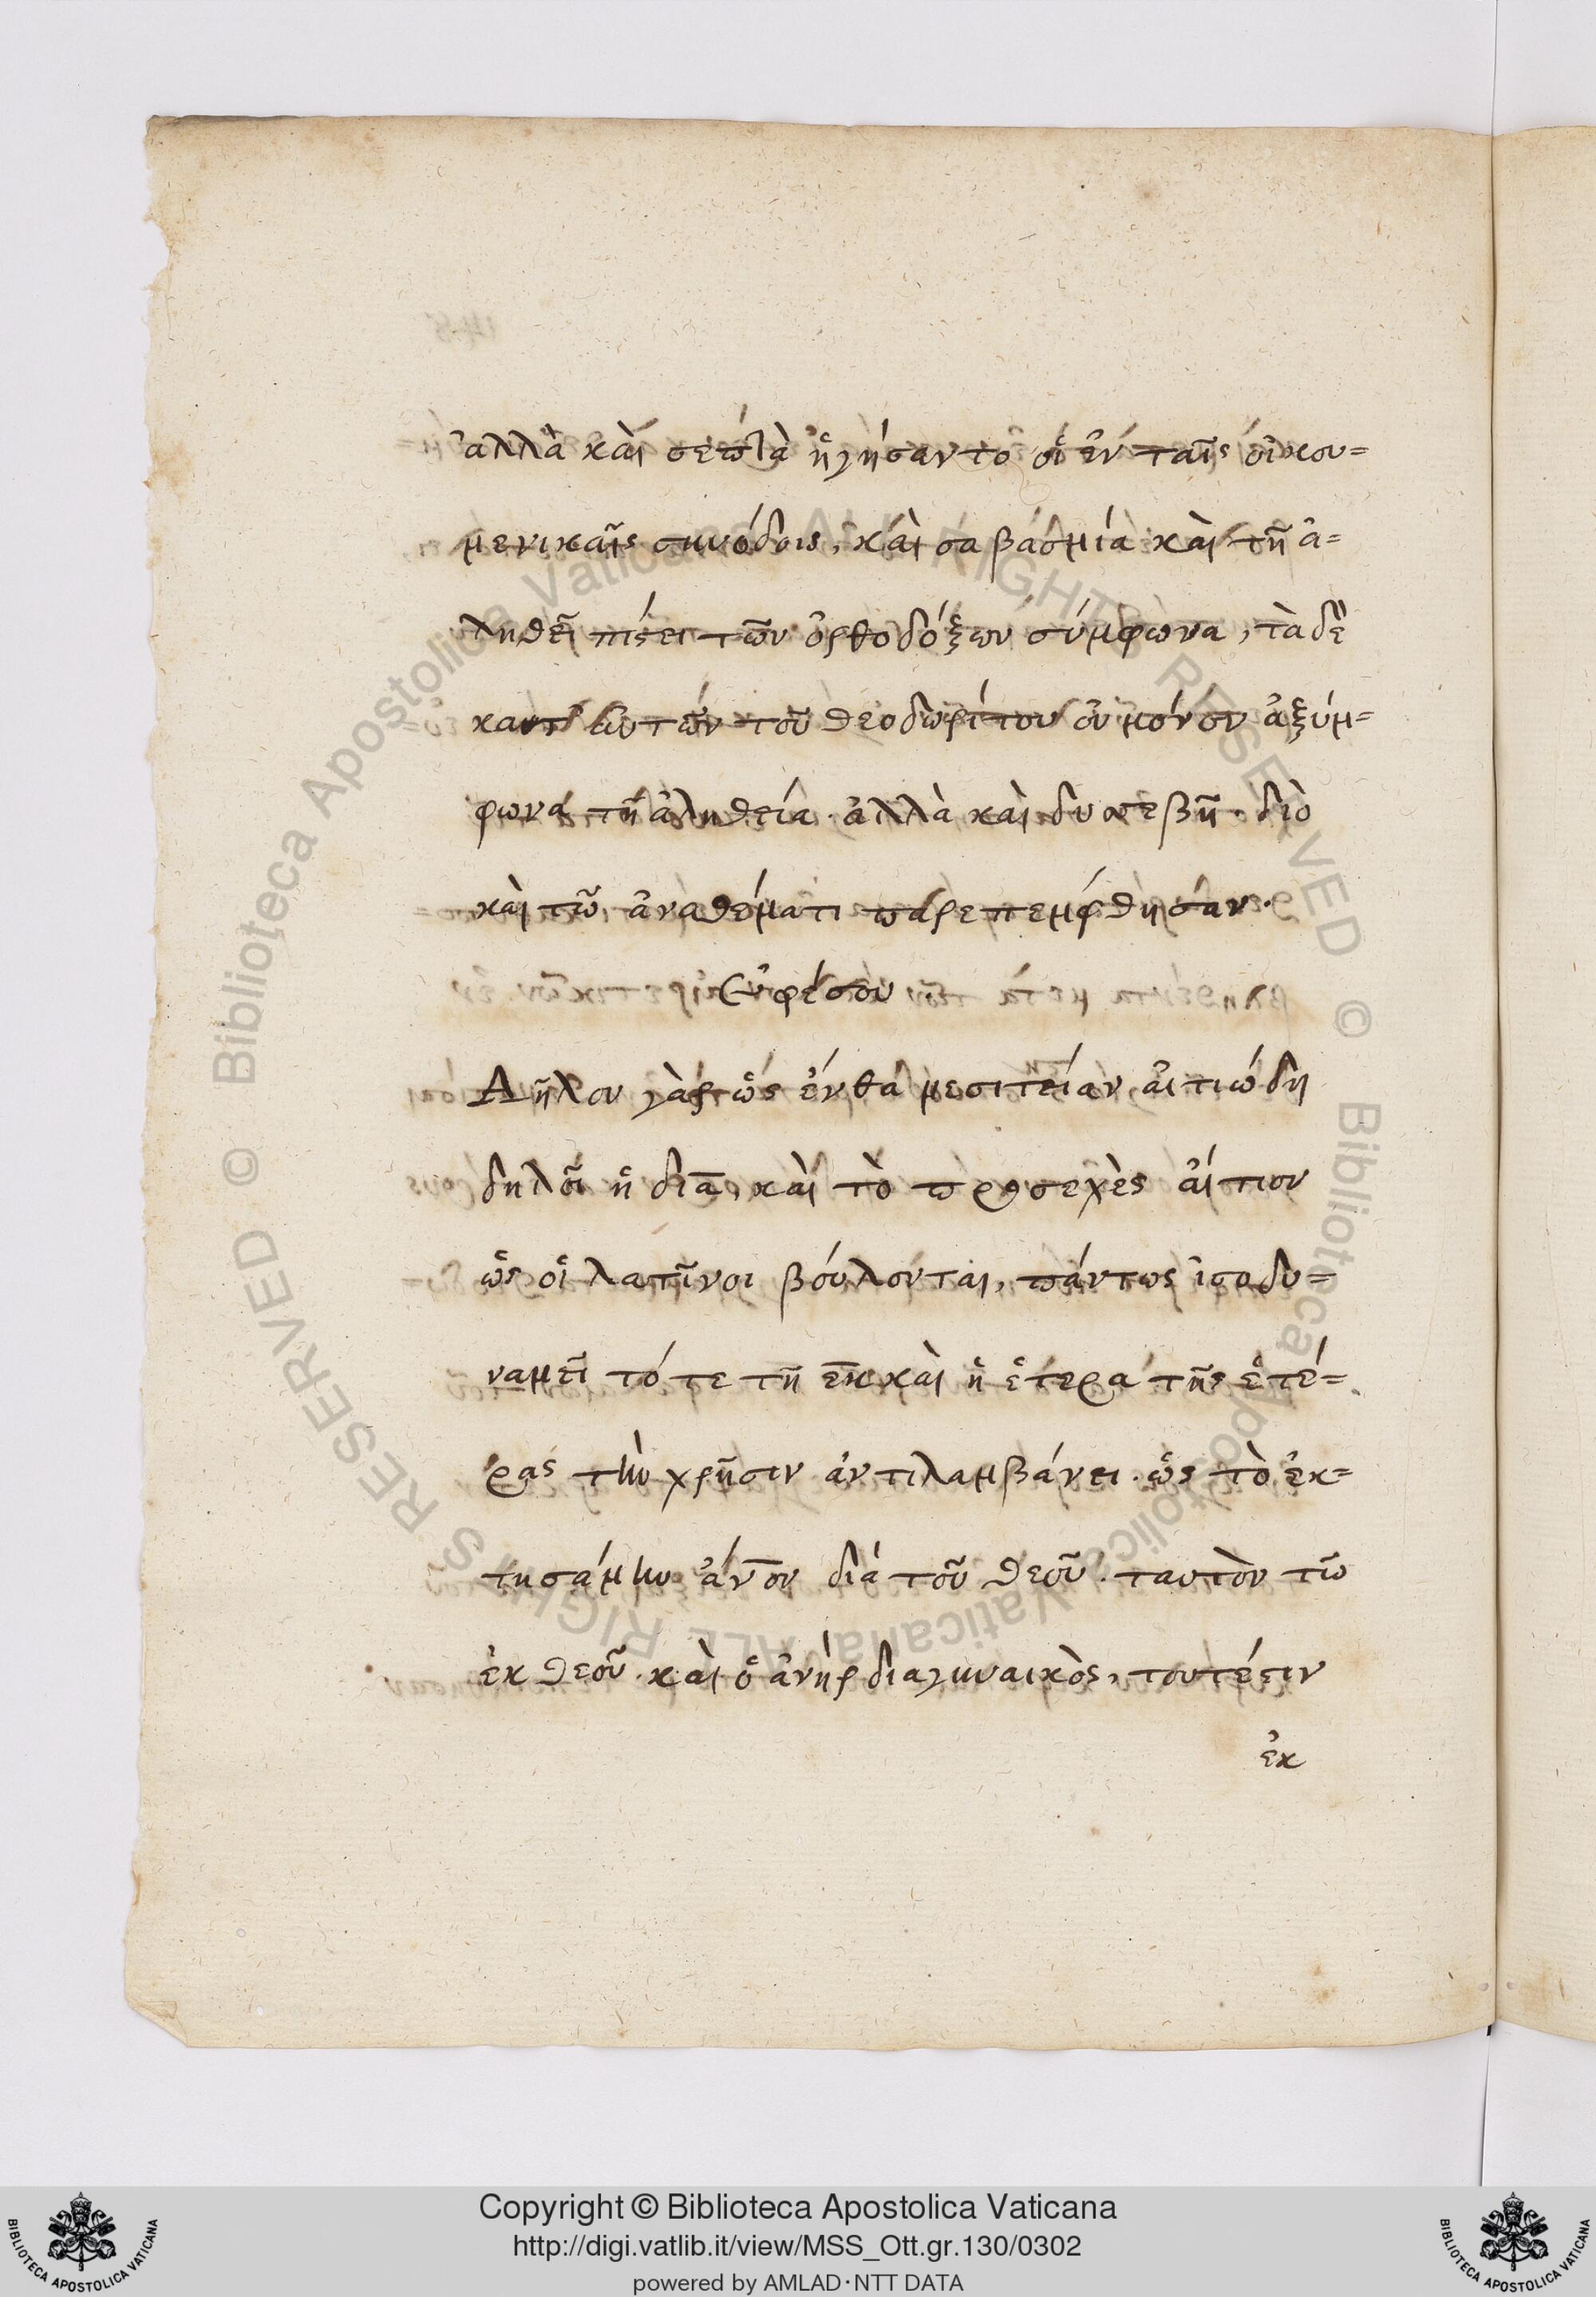 ἀλλὰ καὶ σεπτὰ ἡγήσαντο οἱ ἐν ταῖς οἰκου=
μενικαῖς συνόδοις, καὶ σαβάσμια καὶ τῆ ἀ=
ληθεῖ πίστει τῶν ὀρθοδόξων σύμφωνα, τὰ δὲ
κατ' αὐτῶν τοῦ θεοδωρίτου οὐ μόνον ἀξύμ=
φωνα τῆ ἀληθεία. ἀλλὰ καὶ δυσσεβῆ. διὸ
καὶ τῶ ἀναθέματι παρεπέμφθησαν.
Ἐφέσου
Δῆλον γὰρ ὡς ἔνθα μεσιτείαν αἰτιώδη
δηλοῖ ἡ διὰ, καὶ τὸ προσεχὲς αἴτιον
ὡς οἱ λατῖνοι βούλονται, πάντως ἰσοδυ=
ναμεῖ τότε τῆ ἐκ καὶ ἡ ἑτέρα τῆς ἑτέ=
ρας τὴν χρῆσιν ἀντιλαμβάνει. ὡς τὸ ἐκ=
τησάμην ἄνον διὰ τοῦ θεοῦ. ταυτὸν τῶ
ἐκ θεοῦ. καὶ ὁ ἀνὴρ διαγυναικὸς, τουτέστιν
ἐκ
© Biblioteca Apostolica Vaticana ALL RIGHTS RESERVED © Biblioteca Apostolica Vaticana ALL RIGHTS RESERVED
Copyright © Biblioteca Apostolica Vaticana
http://digi.vatlib.it/view/MSS_Ott.gr.130/0302
powered by AMLAD·NTT DATA
BIBLIOTECA APOSTOLICA VATICANA
BIBLIOTECA APOSTOLICA VATICANA